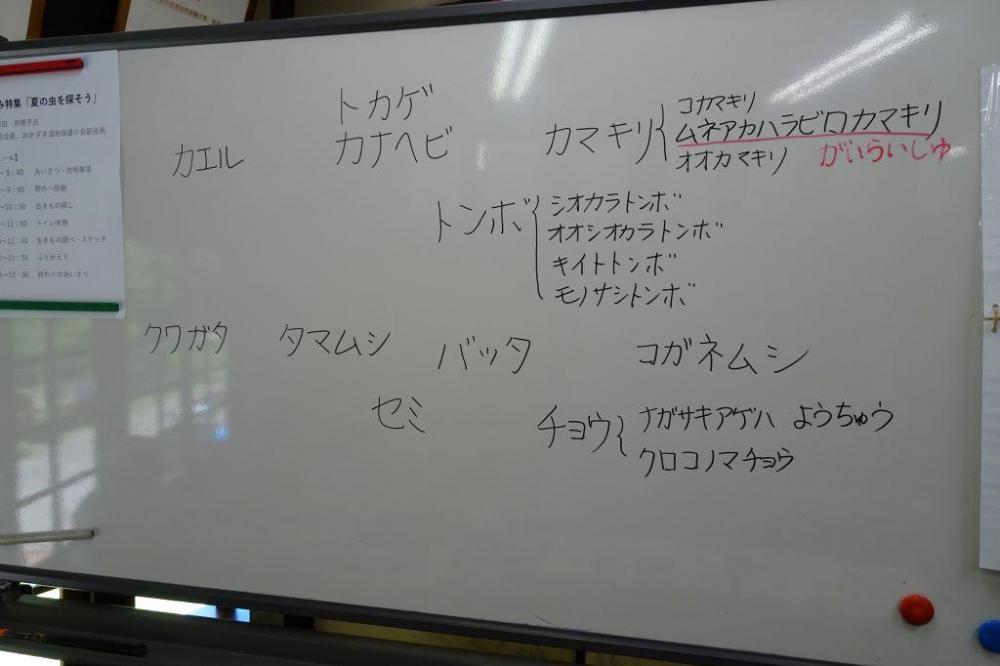 み特集「夏の虫を探そう」
会長
9:40 あいさつ・説明事項
9:50 野外へ移動
10:50 生きもの探し
11:00 トイレ休憩
11:40 生きもの調べ・スケッチ
11:55 ふりかえり
12:00 終わりのあいさつ
トカゲ
カナヘビ
カエル
カマキリ
コカマキリ
ムネアカハラビロカマキリ
オオカマキリ がいらいしゅ
トンボ
シオカラトンボ
オオシオカラトンボ
キイトトンボ
モノサシトンボ
クワガタ タマムシ バッタ コガネムシ
セミ
チョウ
ナガサキアゲハ ようちゅう
クロコノマチョウ